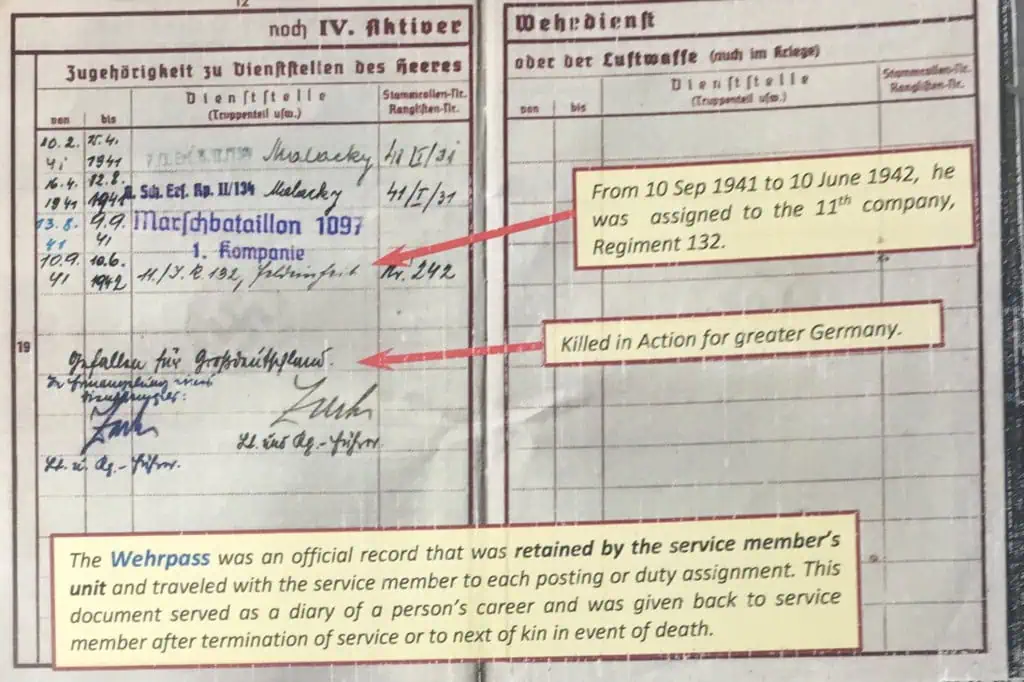 12
noch IV. Aktiver
Wehrdienst
Zugehörigkeit zu Dienststellen des Heeres
oder der Luftwaffe (auch im Kriege)
von
bis
Dienststelle
(Truppenteil usw.)
Stammrollen-Nr.
Ranglisten-Nr.
von
bis
Dienststelle
(Truppenteil usw.)
Stammrollen-Nr.
Ranglisten-Nr.
10.2. 15.4.
41 1941 Malacky 41/I/31
16.4. 12.8. Sch. Ers. Kp. II/134 Malacky 41/I/31
1941 1941
13.8. 9.9. Marschbataillon 1097
41 41 1. Kompanie
10.9. 10.6.
41 1942 11./I.R. 132, Feldeinheit Nr. 242
19
Gefallen für Großdeutschland.
Lt. und Kp.-Führer.
Lt. u. Kp.-Führer.
From 10 Sep 1941 to 10 June 1942, he
was assigned to the 11th company,
Regiment 132.
Killed in Action for greater Germany.
The Wehrpass was an official record that was retained by the service member's
unit and traveled with the service member to each posting or duty assignment. This
document served as a diary of a person's career and was given back to service
member after termination of service or to next of kin in event of death.